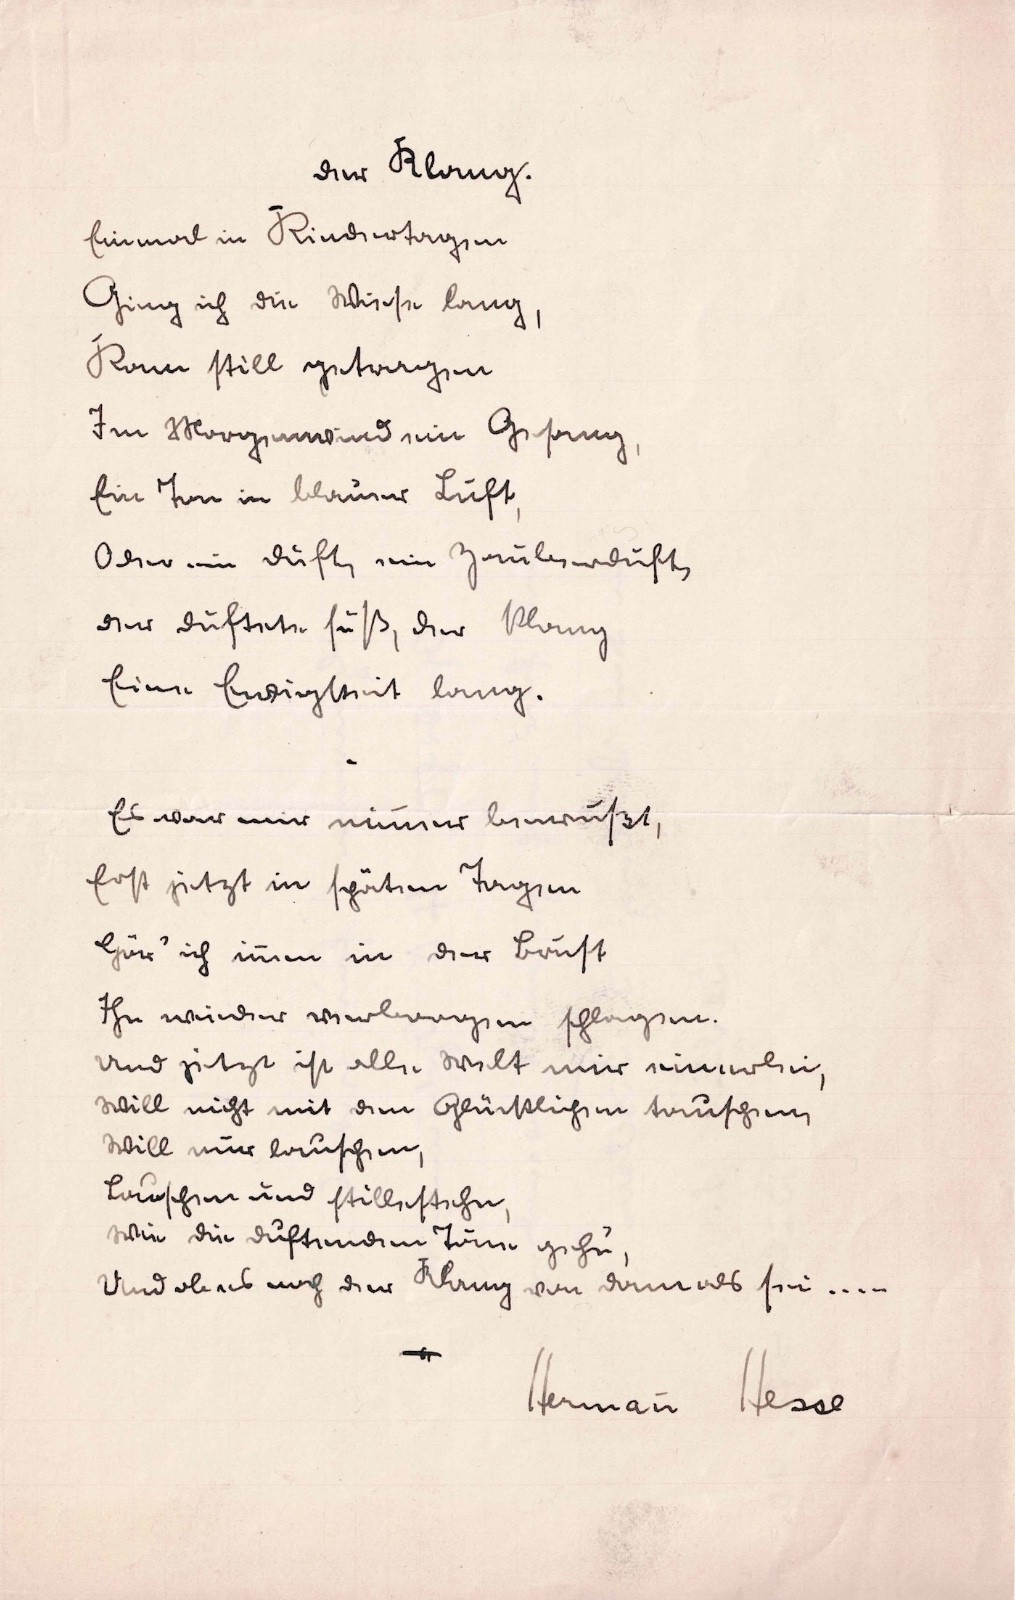 der Klang.
Einmal in Kindertagen
Ging ich die Wiese lang,
Kam still getragen
Im Morgenwind ein Gesang,
Ein Ton in blauer Luft,
Oder ein Duft, ein Zauberduft,
der duftete süß, der Klang
Eine Ewigkeit lang.
-
Es war mir nimmer bewußt,
Erst jetzt in späten Tagen
Hör' ich innen in der Brust
Ihn wieder verborgen schlagen.
Und jetzt ist alle Welt mir einerlei,
Will nicht mit den Glücklichen tauschen,
Will nur lauschen,
Lauschen und stillestehn,
Wie die duftenden Töne gehn,
Und ob es noch der Klang von damals sei .....
Hermann Hesse